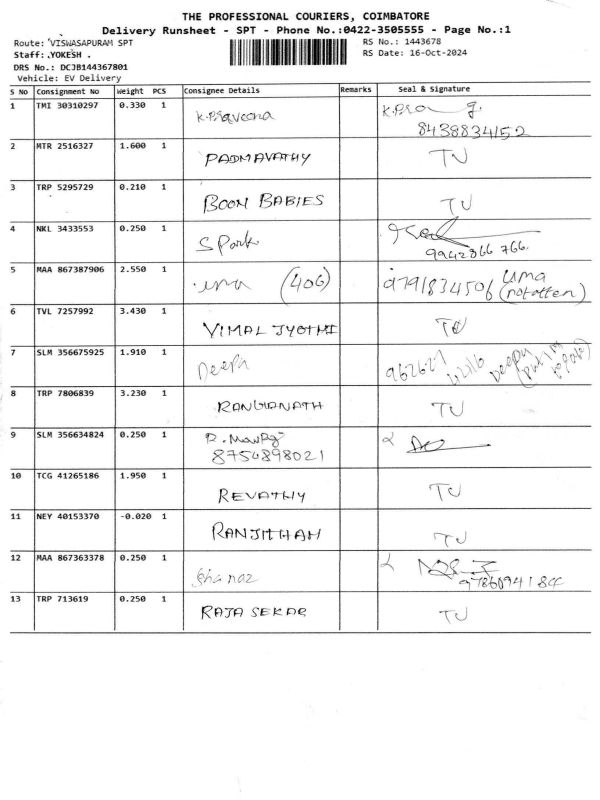 THE PROFESSIONAL COURIERS, COIMBATORE
Delivery Runsheet - SPT - Phone No.:0422-3505555 - Page No.:1
Route: VISWASAPURAM SPT
RS No.: 1443678
Staff: YOKESH
RS Date: 16-Oct-2024
DRS No.: DCJB144367801
Vehicle: EV Delivery
S No Consignment No Weight PCS Consignee Details Remarks Seal & Signature
1 TMI 30310297 0.330 1 K.Praveena
8438834152
2 MTR 2516327 1.600 1 PADMAVATHY TU
3 TRP 5295729 0.210 1 BOON BABIES TU
4 NKL 3433553 0.250 1 S Park
9942866 766.
5 MAA 867387906 2.550 1 uma (406) 9791834506 uma
6 TVL 7257992 3.430 1 VIMAL JYOTHI TU
7 SLM 356675925 1.910 1 Deepa
8 TRP 7806839 3.230 1 RANGANATH TU
9 SLM 356634824 0.250 1 R.
8754898021
10 TCG 41265186 1.950 1 REVATHY TU
11 NEY 40153370 -0.020 1 RANJITHAM TU
12 MAA 867363378 0.250 1
13 TRP 713619 0.250 1 RAJA SEKAR TU